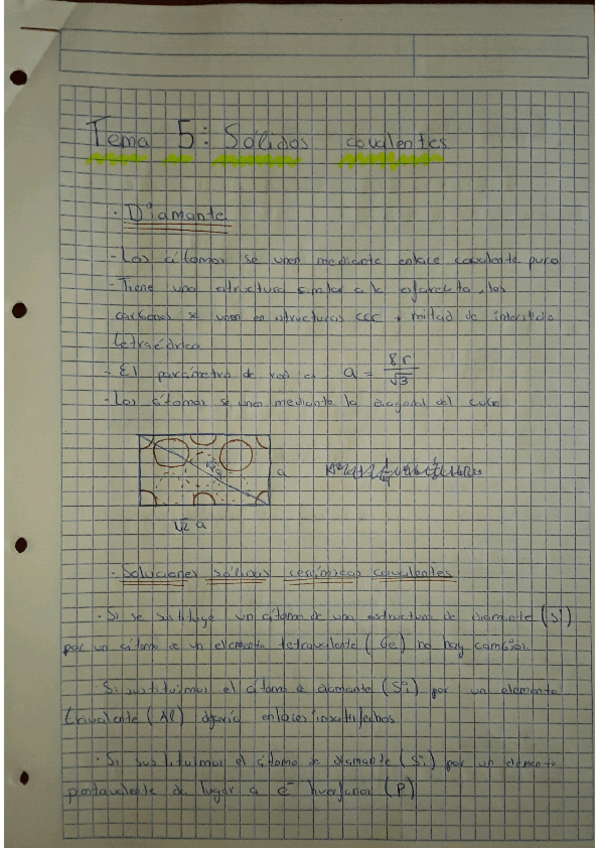 Tema 5: Sólidos covalentes
· Diamante
- Los átomos se unen mediante enlace covalente puro
- Tiene una estructura similar a la esfarelita, los
carbonos se unen en estructuras ccc + mitad de intersticio
tetraédrico
- El parámetro de red es a = 8r/√3
- Los átomos se unen mediante la diagonal del cubo
a
√2 a
· Soluciones sólidas cerámicas covalentes
· Si se sustituye un átomo de una estructura de diamante (Si)
por un átomo de un elemento tetravalente (Ge) no hay cambios.
· Si sustituimos el átomo de diamante (Si) por un elemento
trivalente (Al) dejaría enlaces insatisfechos
· Si sustituimos el átomo de diamante (Si) por un elemento
pentavalente da lugar a e⁻ huérfanos (P)